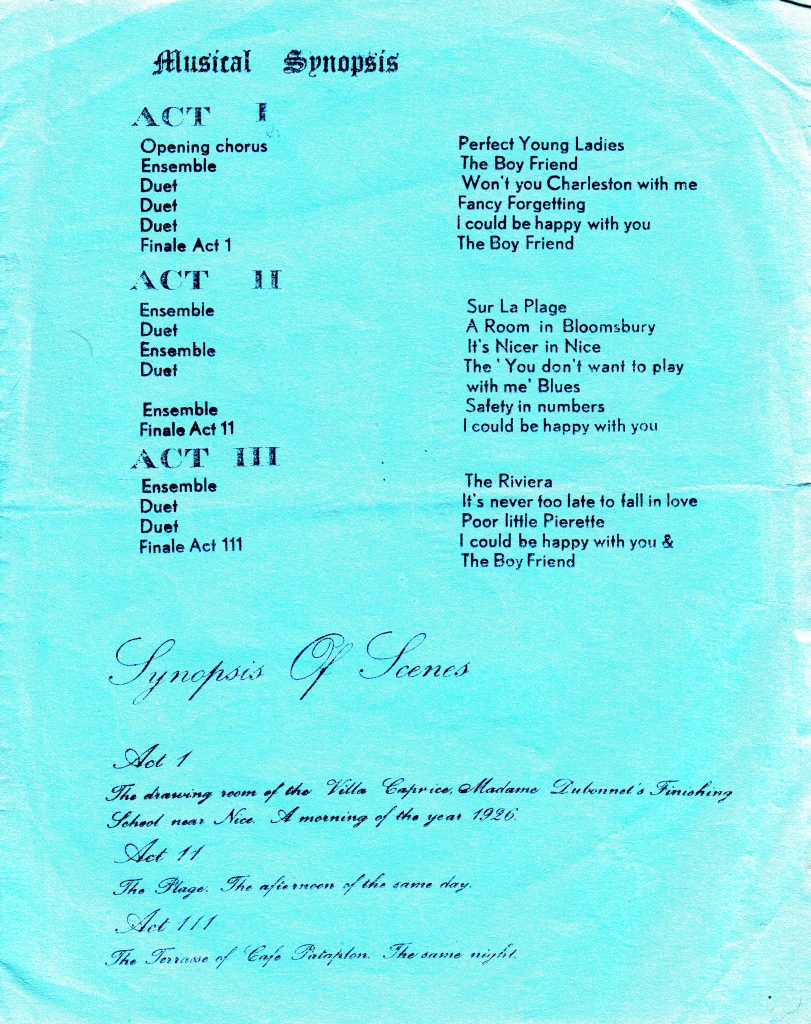 Musical Synopsis
ACT I
Opening chorus Perfect Young Ladies
Ensemble The Boy Friend
Duet Won't you Charleston with me
Duet Fancy Forgetting
Duet I could be happy with you
Finale Act 1 The Boy Friend
ACT II
Ensemble Sur La Plage
Duet A Room in Bloomsbury
Ensemble It's Nicer in Nice
Duet The 'You don't want to play
with me' Blues
Ensemble Safety in numbers
Finale Act 11 I could be happy with you
ACT III
Ensemble The Riviera
Duet It's never too late to fall in love
Duet Poor little Pierette
Finale Act 111 I could be happy with you &
The Boy Friend
Synopsis Of Scenes
Act 1
The drawing room of the Villa Caprice, Madame Dubonnet's Finishing
School near Nice. A morning of the year 1926.
Act 11
The Plage. The afternoon of the same day.
Act 111
The Terrasse of Cafe Pataplon. The same night.